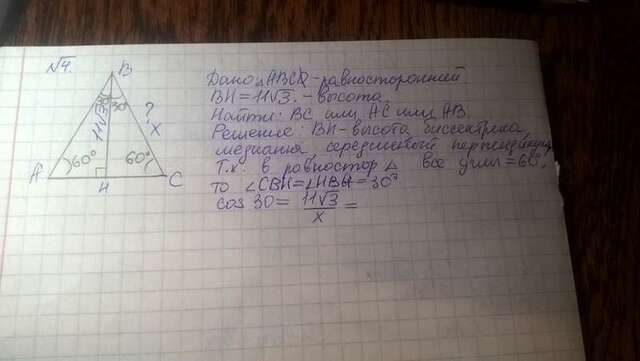 √4.
B
30°
30°
11√3
?
x
A
60°
60°
H
C
Дано △ABC - равносторонний
BH = 11√3. - высота
Найти: BC или AC или AB.
Решение: BH - высота, биссектриса,
медиана, серединный перпендикуляр
Т.к. в равностор △ все углы = 60°,
то ∠CBH = ∠HBA = 30°
cos 30 = 11√3 / x =